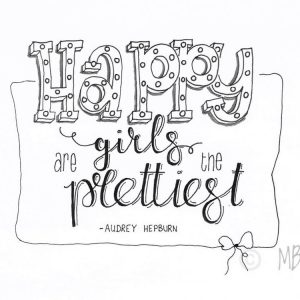 Happy
girls
are the
prettiest
-AUDREY HEPBURN
© MB